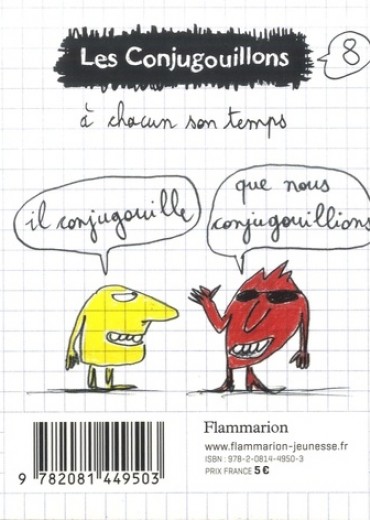 Les Conjugouillons
8
à chacun son temps
il conjugouille
que nous
conjugouillions
Flammarion
www.flammarion-jeunesse.fr
ISBN : 978-2-0814-4950-3
PRIX FRANCE 5 €
9 782081 449503